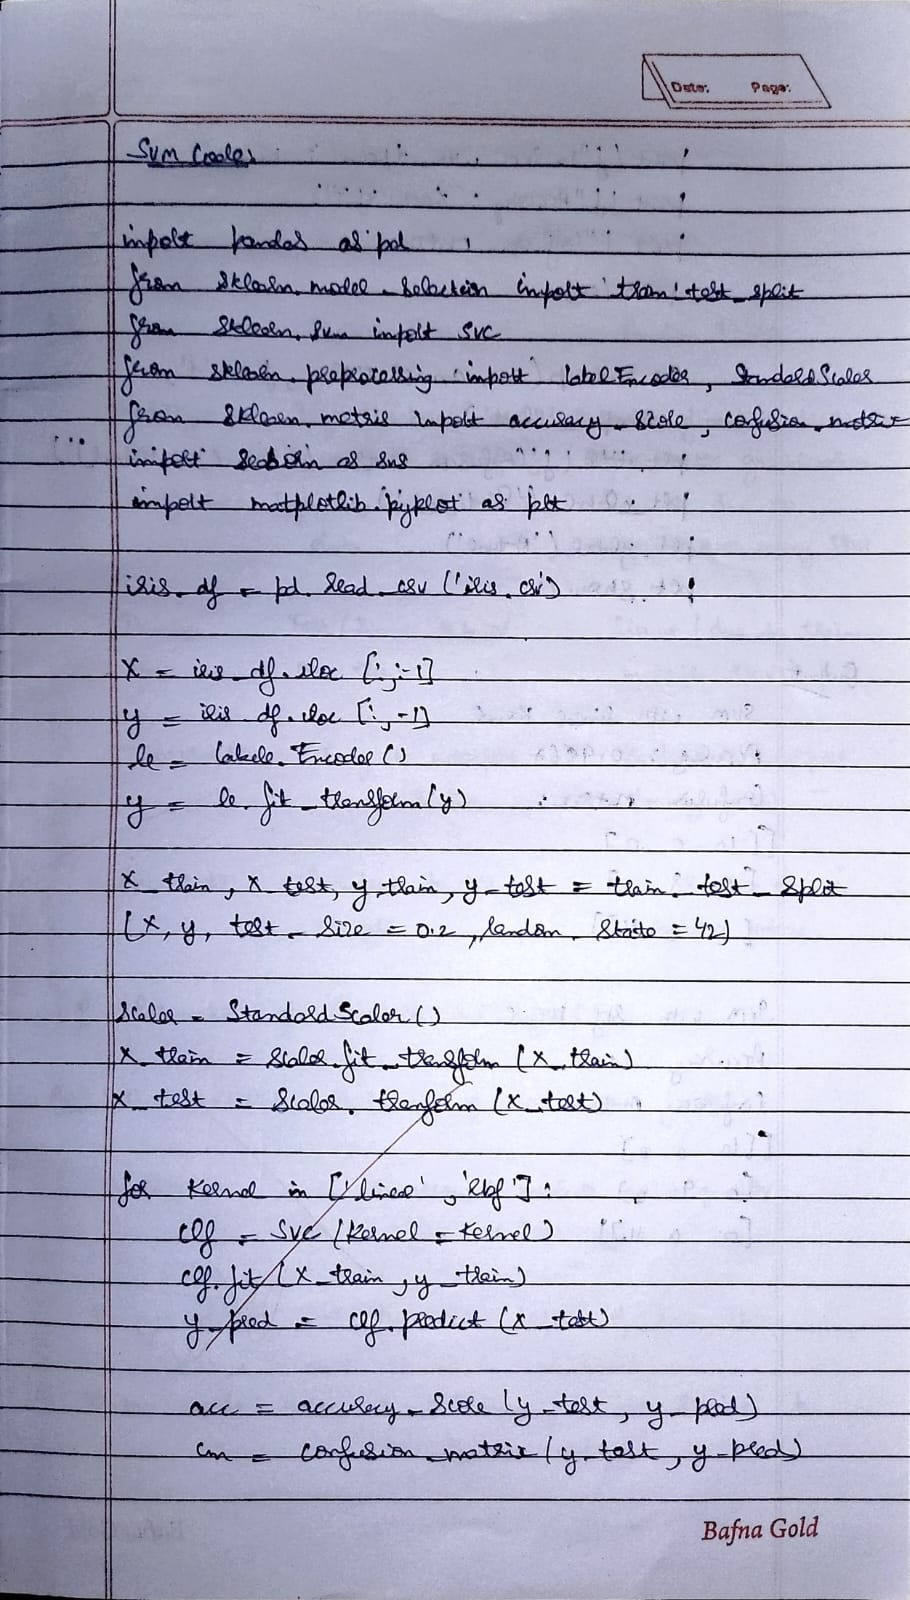 Date: Page:
SVM Code:
import pandas as pd
from sklearn. model - selection import train test_split
from sklearn. svm import SVC
from sklearn. preprocessing import label Encoder, Standard Scaler
from sklearn. metris import accuracy - score, confusion - matrix
import seaborn as sns
import matplotlib. pyplot as plt
iris - df = pd. read - csv ('iris. csv')
X = iris _ df. iloc [:, :-1]
y = iris df. iloc [:, -1]
le = Labele. Encoder ()
y = le. fit _ transform (y)
X _ train, X _ test, y _ train, y - test = train. test _ split
(X, y, test - size = 0.2, random. state = 42)
Scaler = Standard Scaler ()
X _ train = Scaler. fit _ transform (X _ train)
X _ test = Scaler. tranform (X _ test)
for Kernel in ['linear', 'rbf']:
clf = SVC (kernel = kernel)
clf. fit (X _ train, y _ train)
y _ pred = clf. predict (X _ test)
acc = accuracy - score (y - test, y - pred)
cm = confusion - matrix (y - test, y - pred)
Bafna Gold